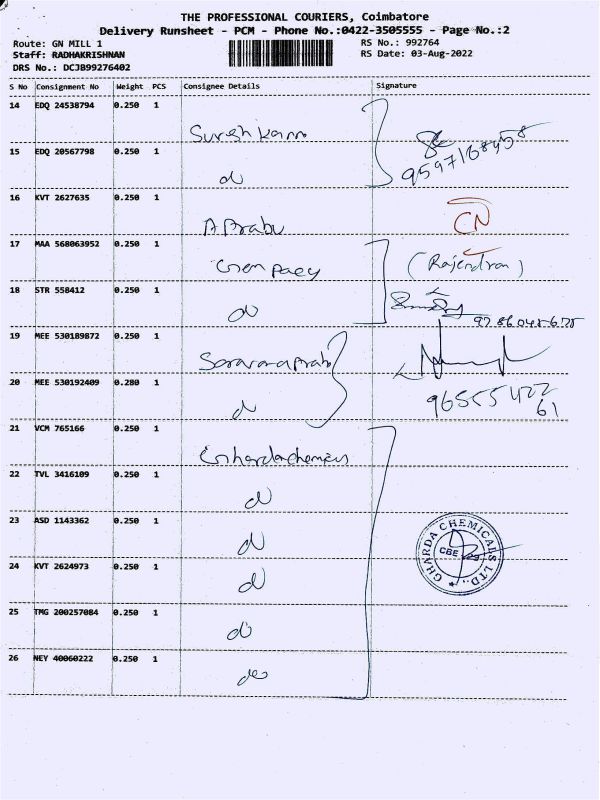 THE PROFESSIONAL COURIERS, Coimbatore
Delivery Runsheet - PCM - Phone No.:0422-3505555 - Page No.:2
Route: GN MILL 1 RS No.: 992764
Staff: RADHAKRISHNAN RS Date: 03-Aug-2022
DRS No.: DCJB99276402
S No Consignment No Weight PCS Consignee Details Signature
14 EDQ 24538794 0.250 1
Suresh kann
15 EDQ 20567798 0.250 1 9597168458
do
16 KVT 2627635 0.250 1
A Prabu CN
17 MAA 568063952 0.250 1
(Rajendran)
18 STR 558412 0.250 1
do
19 MEE 530189872 0.250 1
Saravana Prabu
20 MEE 530192409 0.280 1 9655542261
do
21 VCM 765166 0.250 1
Gharda chemicals
22 TVL 3416109 0.250 1
do
23 ASD 1143362 0.250 1
do
GHARDA CHEMICALS LTD.,
CBE
24 KVT 2624973 0.250 1
do
25 TMG 200257084 0.250 1
do
26 NEY 40060222 0.250 1
do